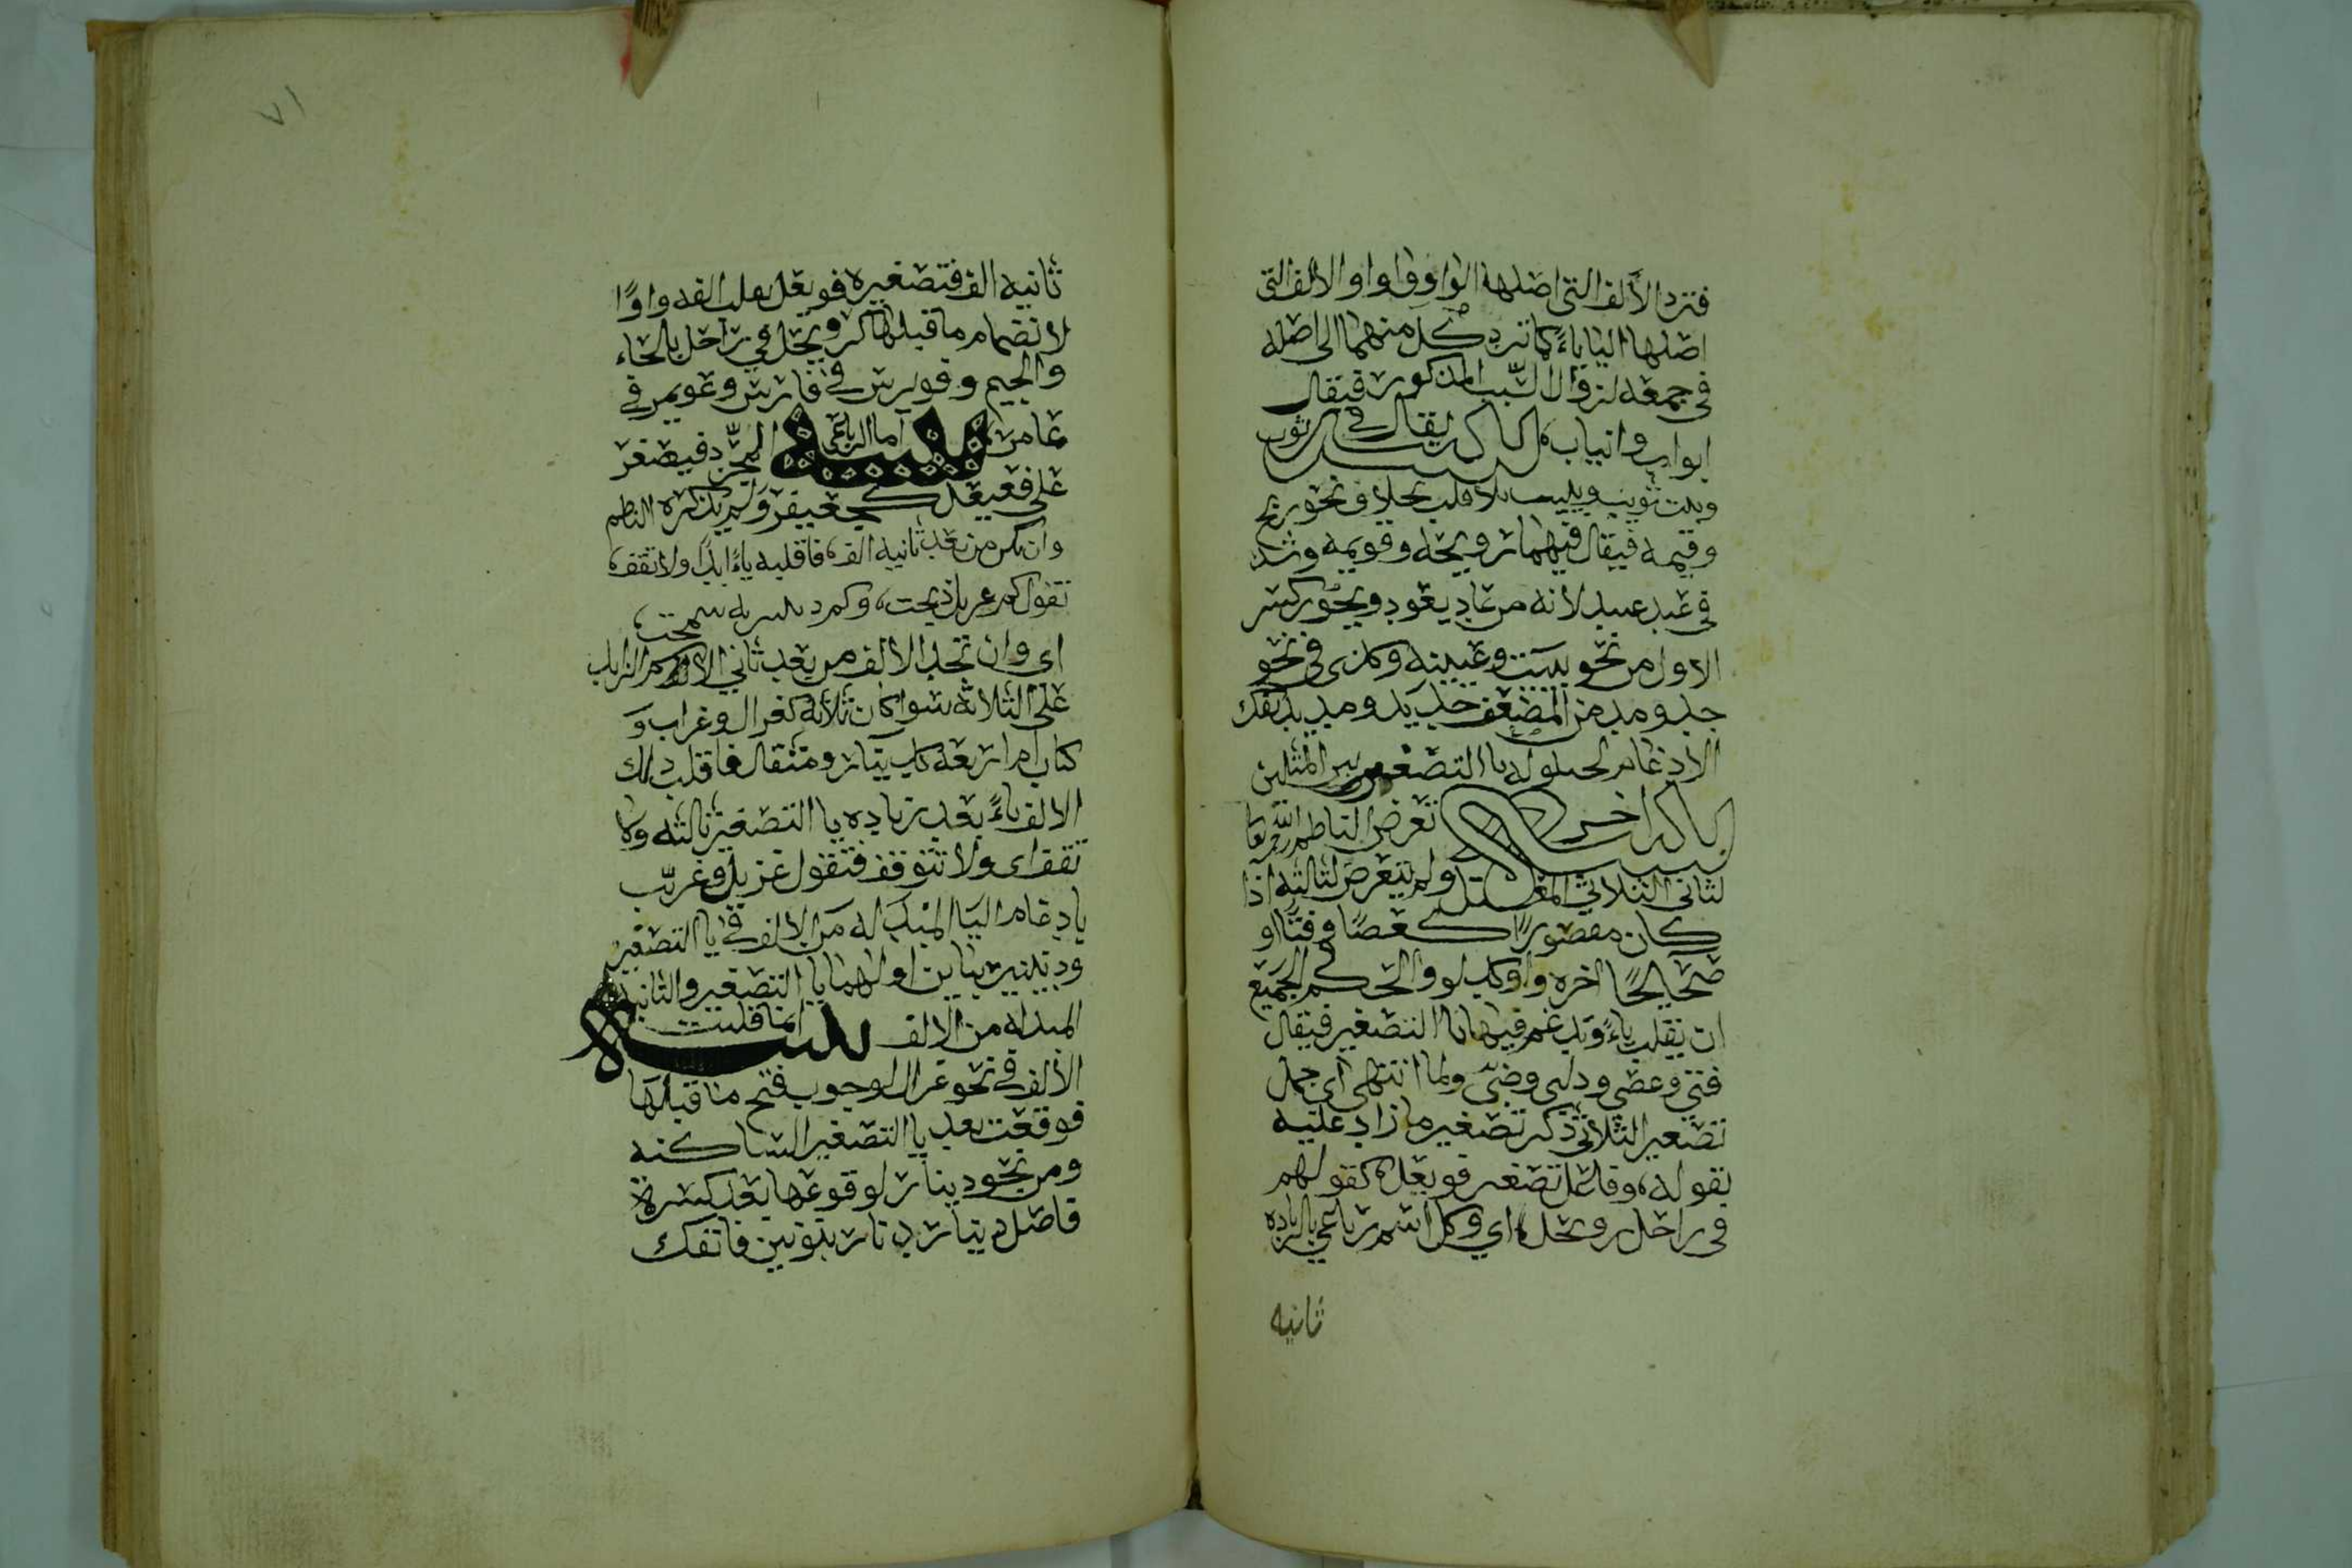 فترد الألف التي اصلها الواو واوا والالف التي
اصلها اليا ياءً كما ترد كل منهما الى اصله
في جمعه لزوال السبب المذكور فيقال
ابواب وانياب، كما يقال في ثوب
وبيت ثويب وبييت بلا قلب بخلاف نحو ريح
وقيمه فيقال فيهما رويحه وقويمه وشذ
في عيد عييد لانه من عاد يعود ويجوز كسر
الاول من نحو بييت وعيينه وكذى في نحو
جد ومد من المضعف جديد ومديد بفك
الادغام لحلوله يا التصغير بين المثلين
تنبيه اخر تعرض الناظم رحمه الله تعالى
لثاني الثلاثي المعتل ولم يتعرض لثالثه اذا
كان مقصورًا كعصًا وفتًا او
صحيحًا اخره واو كدلو والحكم في الجميع
ان يقلب ياءً ويدغم فيها يا التصغير فيقال
فتي وعصي ودلي وضبي ولما انتهى اى جمل
تصغير الثلاثي ذكر تصغير ما زاد عليه
بقوله، وفاعل تصغيره فويعل، كقولهم
في راحل رويحل، اي وكل اسم رباعي بالزياده
ثانيه
٧١
ثانيه الف فتصغيره فويعل بقلب الفه واوًا
لانضمام ما قبلها كرويحل في راحل بالحاء
والجيم وفويرس في فارس وعويمر في
عامر تنبيه اما الرباعي المجرد فيصغر
على فعيعل كجعيفر ولم يذكره الناظم
وان تكن من بعد ثانيه الف، فاقلبه ياءً ابدًا ولا تقف،
تقول كم غزيل ذبحت، وكم دنينير به سمحت،
اى وان تجد الالف من بعد ثاني الاسم الزايد
على الثلاثه سوا كان ثلاثه كغزال وغراب و
كتاب ام اربعة كدينار ومثقال فاقلب ذلك
الالف ياءً بعد زياده يا التصغير ثالثه ولا
تقف اى ولا تتوقف فتقول غزيل وغريب
بادغام اليا المبدله من الالف في يا التصغير
ودنينير بياين اولهما يا التصغير والثانيه
المبدله من الالف تنبيه انما قلبت
الألف في نحو غزال لوجوب فتح ما قبلها
فوقعت بعد يا التصغير الساكنه
ومن نحو دينار لوقوعها بعد كسرة
فاصل دينار دنار بنونين فانفك